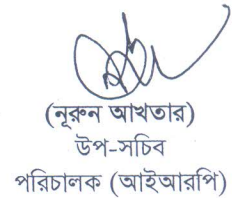 (নূরুন আখতার)
উপ-সচিব
পরিচালক (আইআরপি)